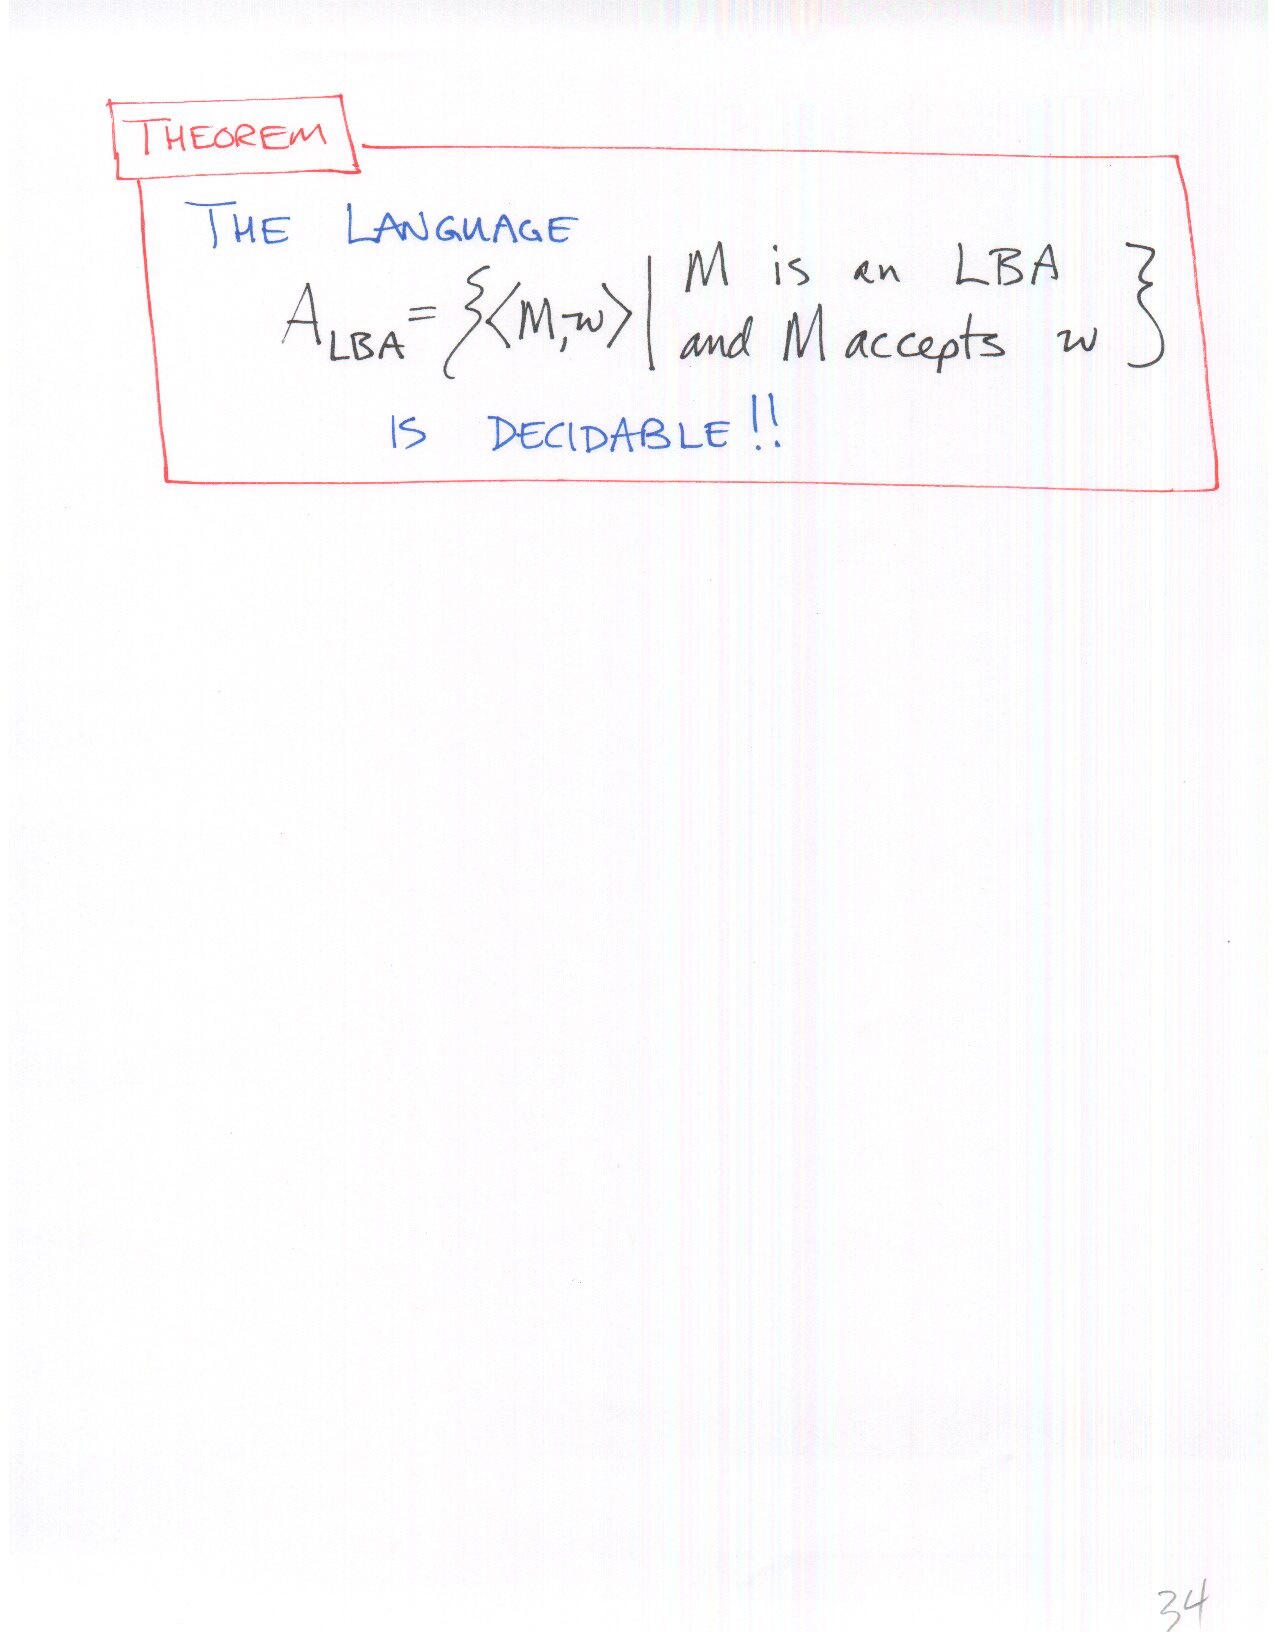 THEOREM
THE LANGUAGE
A_LBA = {⟨M,w⟩ | M is an LBA
and M accepts w }
IS DECIDABLE!!
34